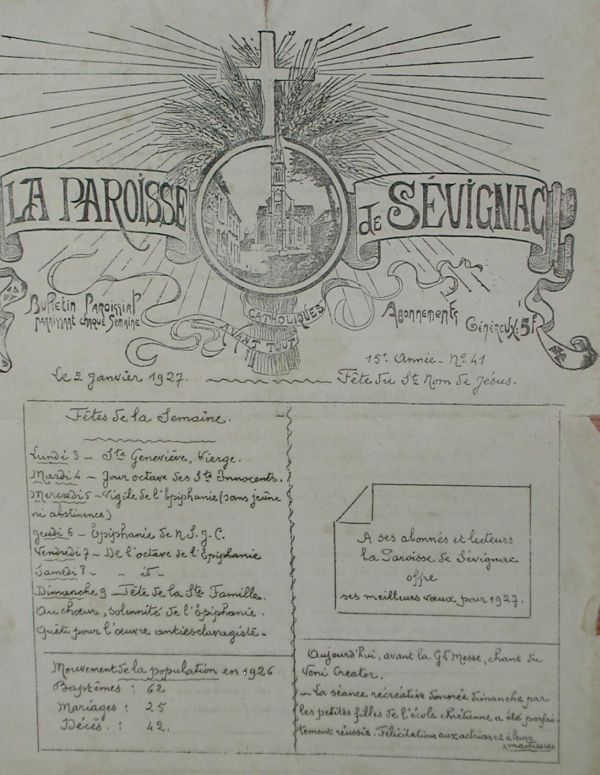 LA PAROISSE de SÉVIGNAC
Bulletin Paroissial
paraissant chaque Semaine
CATHOLIQUES
AVANT TOUT
Abonnements
Généreux: 5F
15e Année - No 41
Le 2 Janvier 1927.
Fête du St Nom de Jésus.
Fêtes de la Semaine.
Lundi 3 - Ste Geneviève, Vierge.
Mardi 4 - Jour octave des Sts Innocents.
Mercredi 5 - Vigile de l'Epiphanie (sans jeûne
ni abstinence)
Jeudi 6 - Epiphanie de N.S.J.C.
Vendredi 7 - De l'octave de l'Epiphanie
Samedi 8 - - id -
Dimanche 9 - Fête de la Ste Famille.
Au choeur, solennité de l'Epiphanie.
Quête pour l'œuvre antiesclavagiste -
Mouvement de la population en 1926
Baptêmes : 62
Mariages : 25
Décés. : 42.
A ses abonnés et lecteurs
la Paroisse de Sévignac
offre
ses meilleurs vœux pour 1927.
Aujourd'hui, avant la Gd Messe, chant du
Veni Creator.
- La séance récréative donnée dimanche par
les petites filles de l'école chrétienne a été parfai-
tement réussie. Félicitations aux actrices et à leurs
maitresses